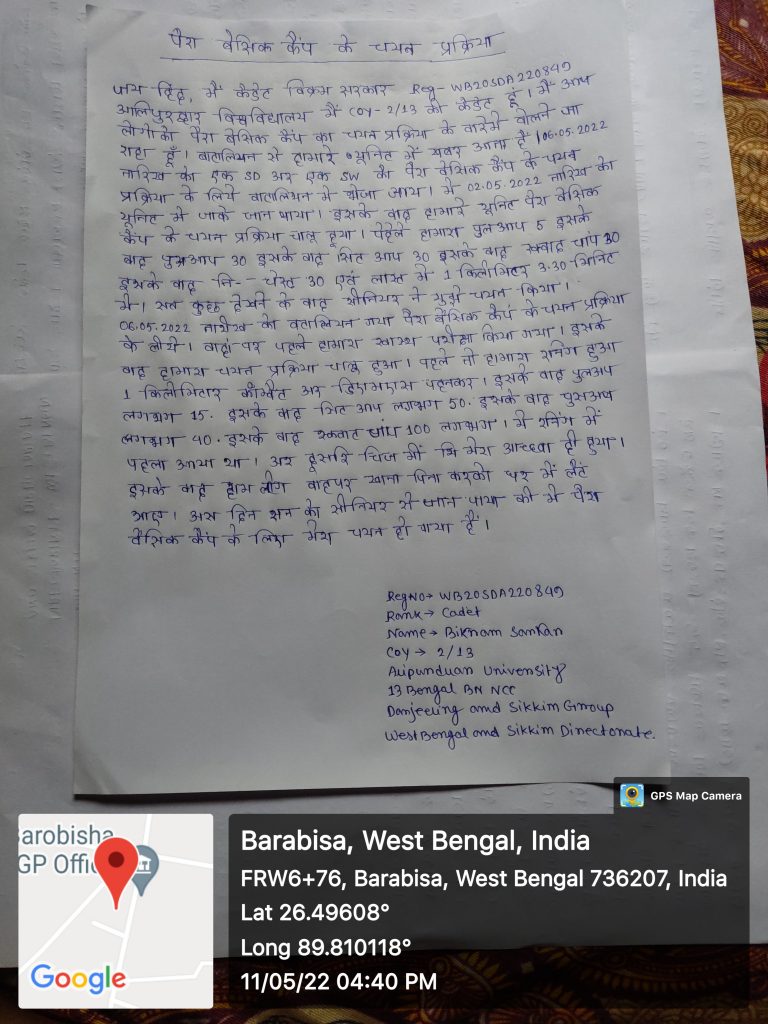 पैरा बेसिक कैंप के चयन प्रक्रिया
जय हिंद, मैं कैडेट विक्रम सरकार Reg- WB20SDA220849
आलिपुरद्वार विश्वविधालय मैं COY-2/13 की कैडेट हूं। मैं आप
लोगोको पैरा बेसिक कैंप का चयन प्रक्रिया के बारेमे बोलने जा
राहा हूँ। बाटालियन से हामारे यूनिट में खबर आता हैं। 06.05.2022
तारिख का एक SD अर एक SW को पैरा बेसिक कैंप के चयन
प्रक्रिया के लिये बाटालियन मे भेजा जाय। मे 02.05.2022 तारिख का
यूनिट मे जाके जान पाया। इसके बाद हामारे यूनिट पैरा बेसिक
कैंप के चयन प्रक्रिया चालू हूया। पेहेले हामारा पुलआप 5 इसके
बाद पुसआप 30 इसके बाद सित आप 30 इसके बाद स्क्वाद चांप 30
इसके बाद नि-- चेस्ट 30 एवं लास्ट में 1 किलोमिटर 3.30 मिनिट
मे। सब कुछ देखने के बाद सीनियर ने मुझे चयन किया।
06.05.2022 तारीख को बटालियन गया पैरा बेसिक कैंप के चयन प्रक्रिया
के लीये। वाहां पर पहले हामारा स्वास्थ परीक्षा किया गया। इसके
बाद हामारा चयन प्रक्रिया चालु हुआ। पहले तो हामारा रानिंग हुआ
1 किलोमिटार कॉम्बैट अर डिएमएस पहनकर। इसके बाद पुलआप
लगभग 15. इसके बाद सित आप लगभग 50. इसके बाद पुसआप
लगभग 40. इसके बाद स्क्वाट चांप 100 लगभग। मे रनिंग में
पहला आया था। अर दूसरि चिज मों भि मेरा आच्छा ही हुया।
इसके बाद हाम लोग वाहपर खाना पिना करको घर में लौट
आए। अस दिन रात का सीनियर से जान पाया की मे पैरा
बेसिक कैंप के लिए मेरा चयन हो गया हैं।
RegNo→ WB20SDA220849
Rank→ Cadet
Name→ Bikram Sarkar
COY→ 2/13
Alipurduar University
13 Bengal BN NCC
Darjeeling and Sikkim Group
West Bengal and Sikkim Directorate.
GPS Map Camera
arobisha
GP Offic
Google
Barabisa, West Bengal, India
FRW6+76, Barabisa, West Bengal 736207, India
Lat 26.49608°
Long 89.810118°
11/05/22 04:40 PM